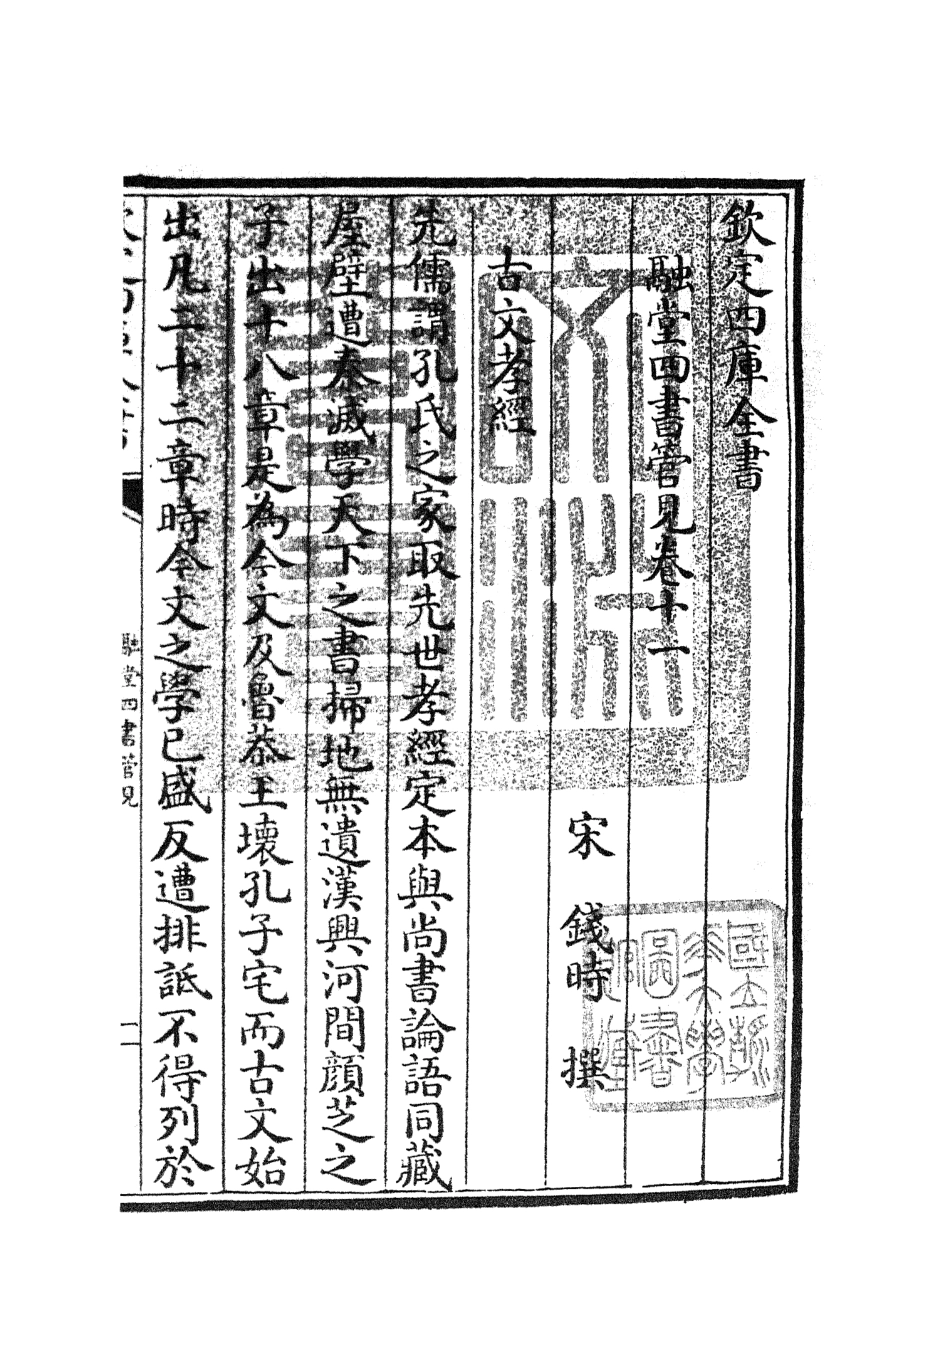 欽定四庫全書
融堂四書管見卷十一
宋 錢時 撰
古文孝經
先儒謂孔氏之家取先世孝經定本與尚書論語同藏
屋壁遭秦滅學天下之書掃地無遺漢興河間顔芝之
子出十八章是為今文及魯恭王壞孔子宅而古文始
出凡二十二章時今文之學已盛反遭排詆不得列於
融堂四書管見
一
國立浙江大學圖書館藏